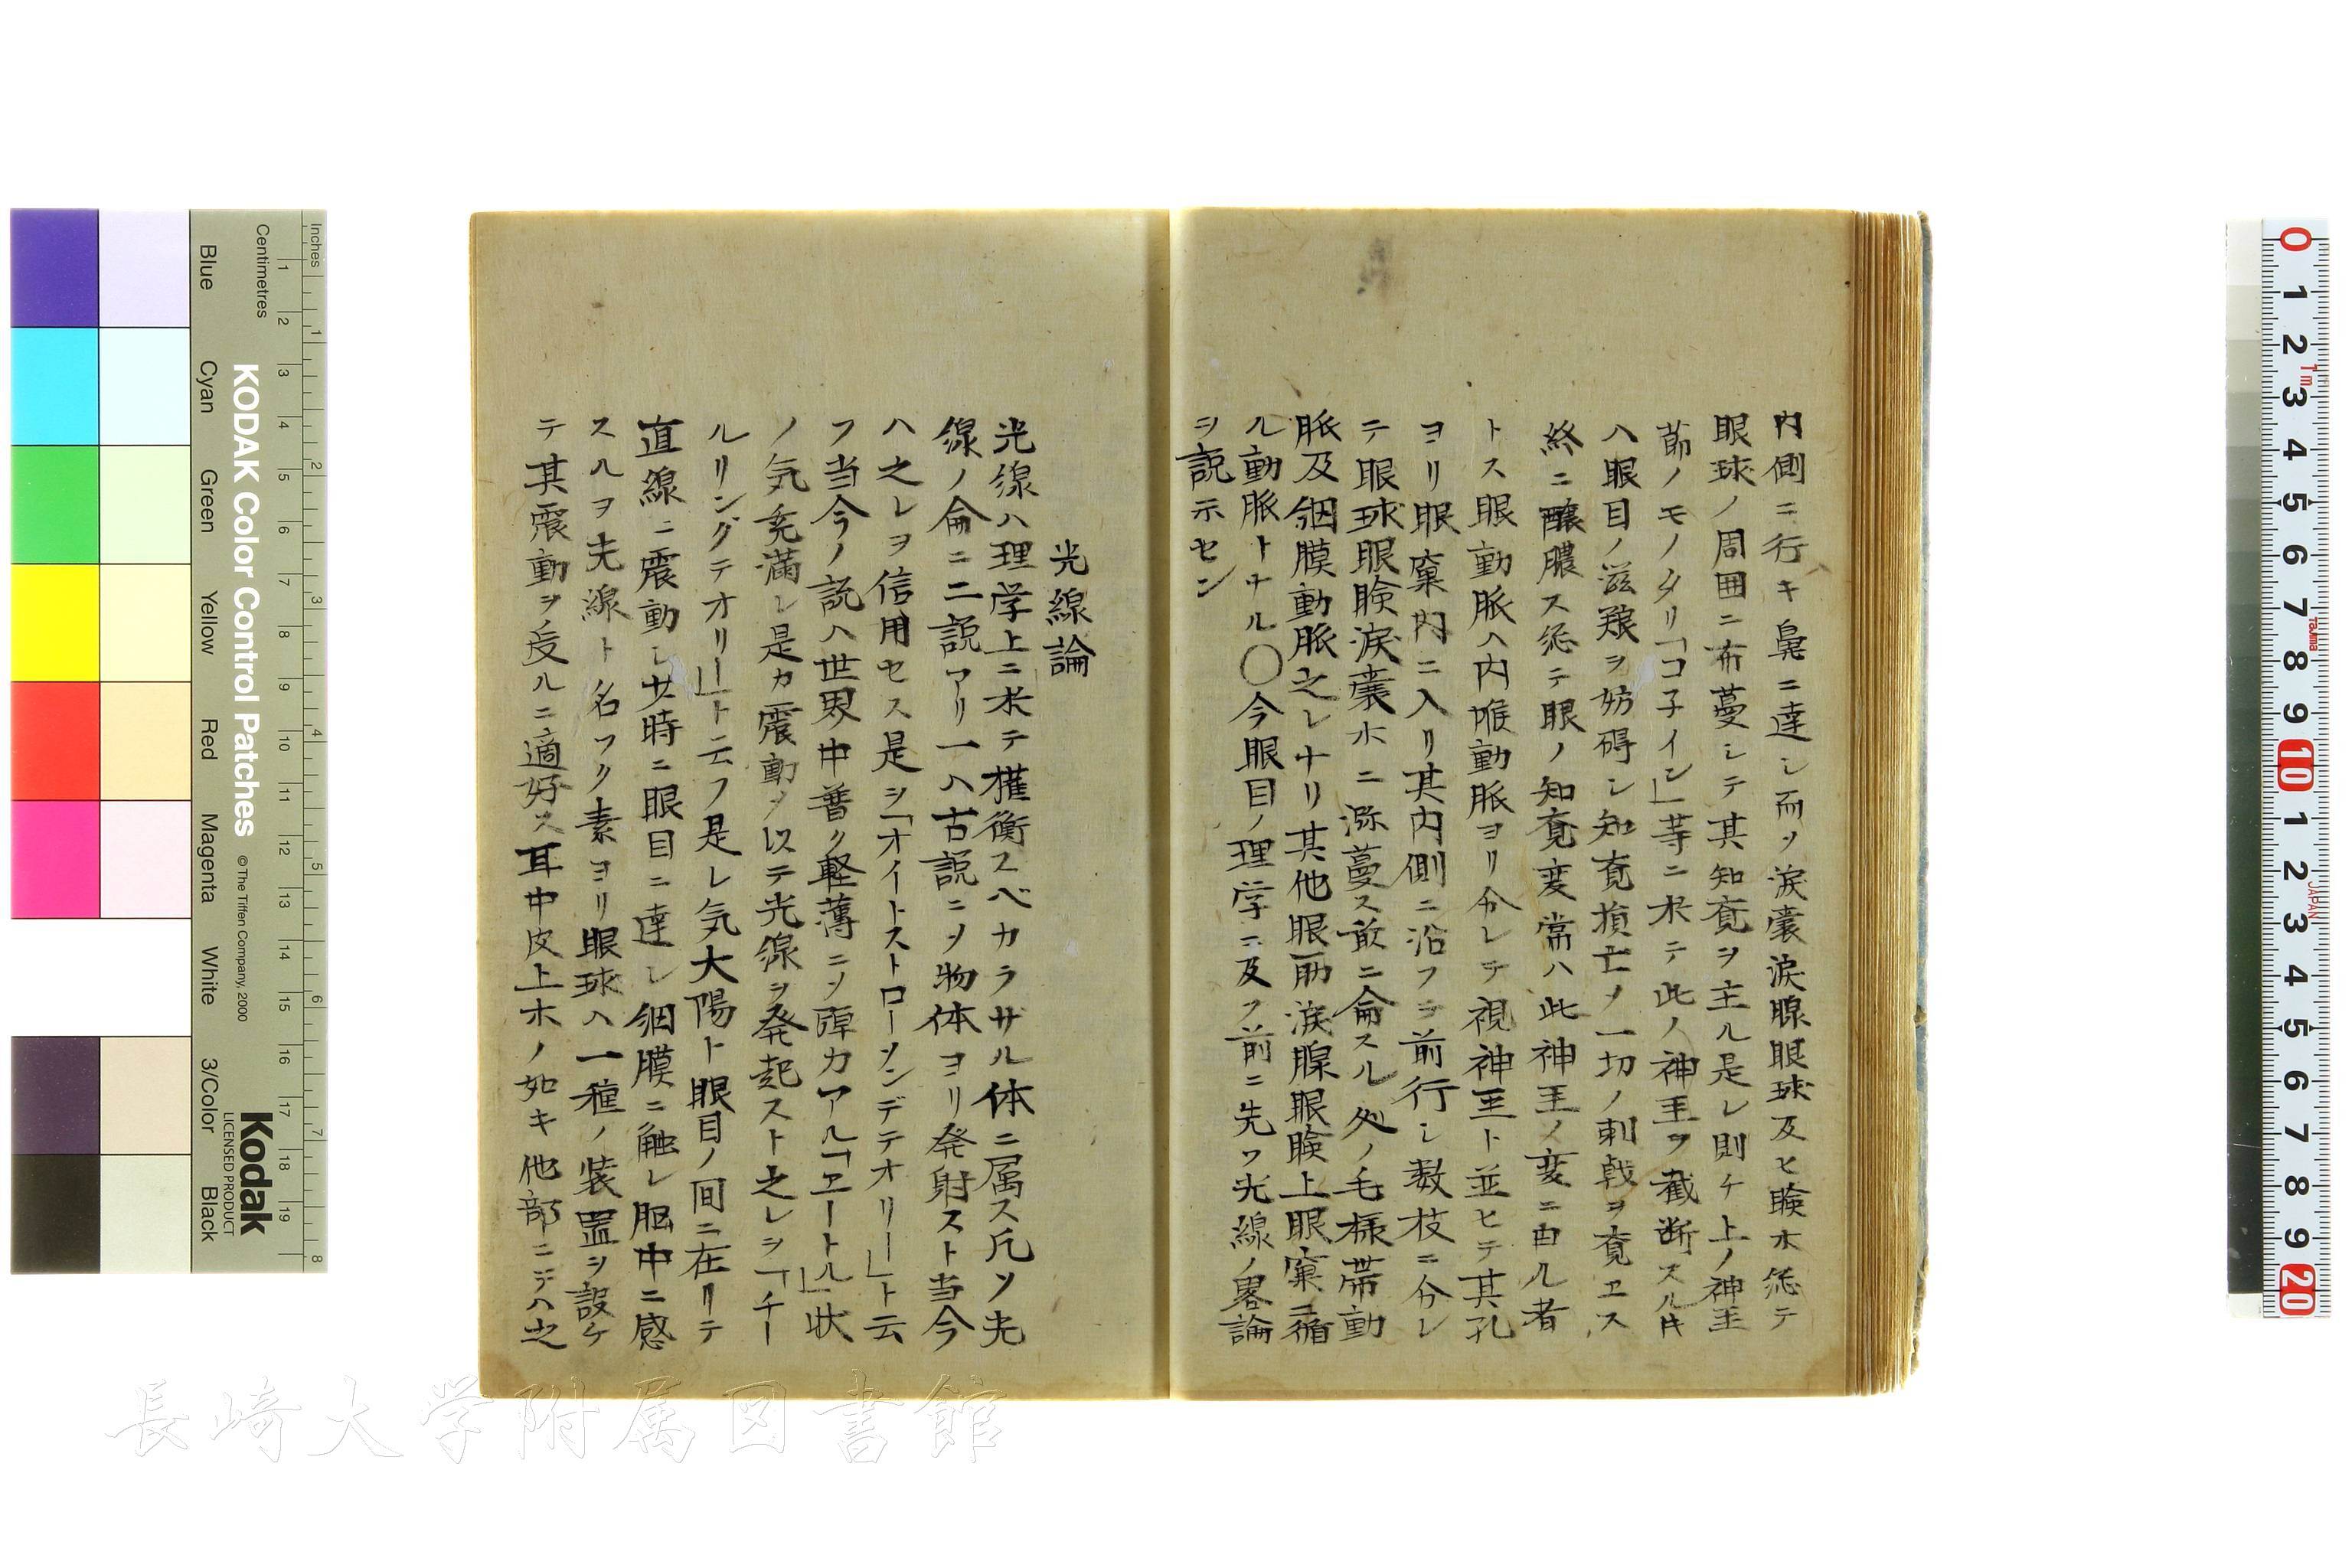 内側ニ行キ鼻ニ達シ而ソ涙嚢涙腺眼球及ヒ瞼ホ惣テ
眼球ノ周囲ニ布蔓シテ其知覚ヲ主ル是レ則ケ上ノ神王
節ノモノタリ「コ子イン」等ニ於テ此ノ神王ヲ截断スル𪜈
ハ眼目ノ滋羪ヲ妨碍シ知覚損亡メ一切ノ刺戟ヲ覚ヱス
終ニ醸膿ス惣テ眼ノ知覚変常ハ此神王ノ変ニ由ル者
トス眼動脈ハ内堆動脈ヨリ分レテ視神王ト並ヒテ其孔
ヨリ眼窠内ニ入リ其内側ニ沿フテ前行シ数枝ニ分レ
テ眼球眼瞼涙嚢ホニ弥蔓ス散ニ侖スル処ノ毛様帯動
脈及網膜動脈之レナリ其他眼筋涙腺眼瞼上眼窠ニ循
ル動脈トナル〇今眼目ノ理学ニ及フ前ニ先ツ光線ノ畧論
ヲ説示セン
光線論
光線ハ理学上ニ於テ権衡スベカラサル体ニ属ス凡ソ光
線ノ侖ニ二説アリ一ハ古説ニソ物体ヨリ発射スト当今
ハ之レヲ信用セス是ヲ「オイトストローメンデテオリー」ト云
フ当今ノ説ハ世界中普ク軽薄ニソ弾力アル「ヱートル」状
ノ気充満レ是カ震動ヲ以テ光線ヲ発起スト之レヲ「チー
ルリングテオリー」ト云フ是レ気大陽ト眼目ノ間ニ在リテ
直線ニ震動シ廿時ニ眼目ニ達レ網膜ニ触レ脳中ニ感
スルヲ光線ト名ツク素ヨリ眼球ハ一種ノ装置ヲ設ケ
テ其震動ヲ受ルニ適好ス耳中皮上ホノ如キ他部ニテハ之
KODAK Color Control Patches
© The Tiffen Company, 2000
Kodak
LICENSED PRODUCT
Inches
Centimetres
Blue
Cyan
Green
Yellow
Red
Magenta
White
3/Color
Black
1 2 3 4 5 6 7 8 9 10 11 12 13 14 15 16 17 18 19
1 2 3 4 5 6 7 8
0 1 2 3 4 5 6 7 8 9 10 1 2 3 4 5 6 7 8 9 20
1m
Tajima
JAPAN
長崎大学附属図書館